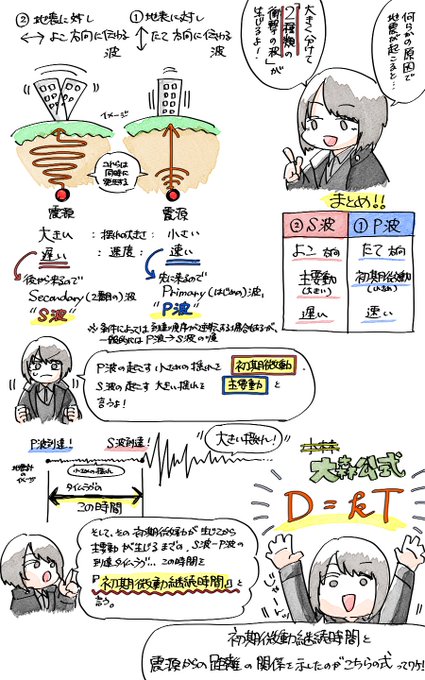 何らかの原因で
地震が起こると…
大きく分けて
"2種類の
衝撃の波"が
生じるよ！
① 地表に対し
たて方向に伝わる
波
② 地表に対し
よこ方向に伝わる
波
イメージ
これらは
同時に
発生する
震源
震源
大きい：揺れの大きさ：小さい
遅い：速度：速い
先に来るので
Primary(はじめの)波，
"P波"
後から来るので
Secondary(2番目の)波
"S波"
※ 条件によっては到達の順序が逆転する場合もあるが、
一般的にはP波→S波の順
まとめ!!
② S波 ① P波
よこ方向 たて方向
主要動 初期微動
(大きい) (小さめ)
遅い 速い
P波の起こす 小さめの揺れを 初期微動
S波の起こす 大きい揺れを 主要動 と
言うよ！
P波到達！
S波到達！
大きい揺れ！
地震計の
イメージ
小さめの揺れ
タイムラグの
この時間
そして、その初期微動が生じてから
主要動が生じるまでの、S波-P波の
到達タイムラグ…、この時間を
『初期微動継続時間』と
言う。
大森公式
D=kT
じゃーん
初期微動継続時間と
震源からの『距離』の関係を示したのがこちらの式ってワケ！